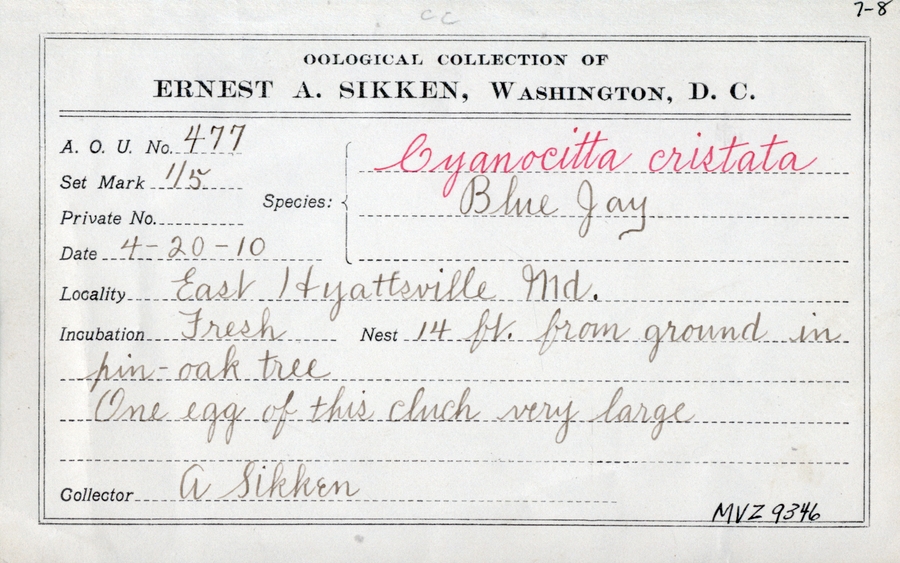 cc
7-8
OOLOGICAL COLLECTION OF
ERNEST A. SIKKEN, WASHINGTON, D. C.
A. O. U. No. 477
Cyanocitta cristata
Set Mark 1/5
Species: Blue Jay
Private No.
Date 4-20-10
Locality East Hyattsville Md.
Incubation Fresh Nest 14 ft. from ground in
pin-oak tree
One egg of this cluch very large
Collector A Sikken
MVZ 9346